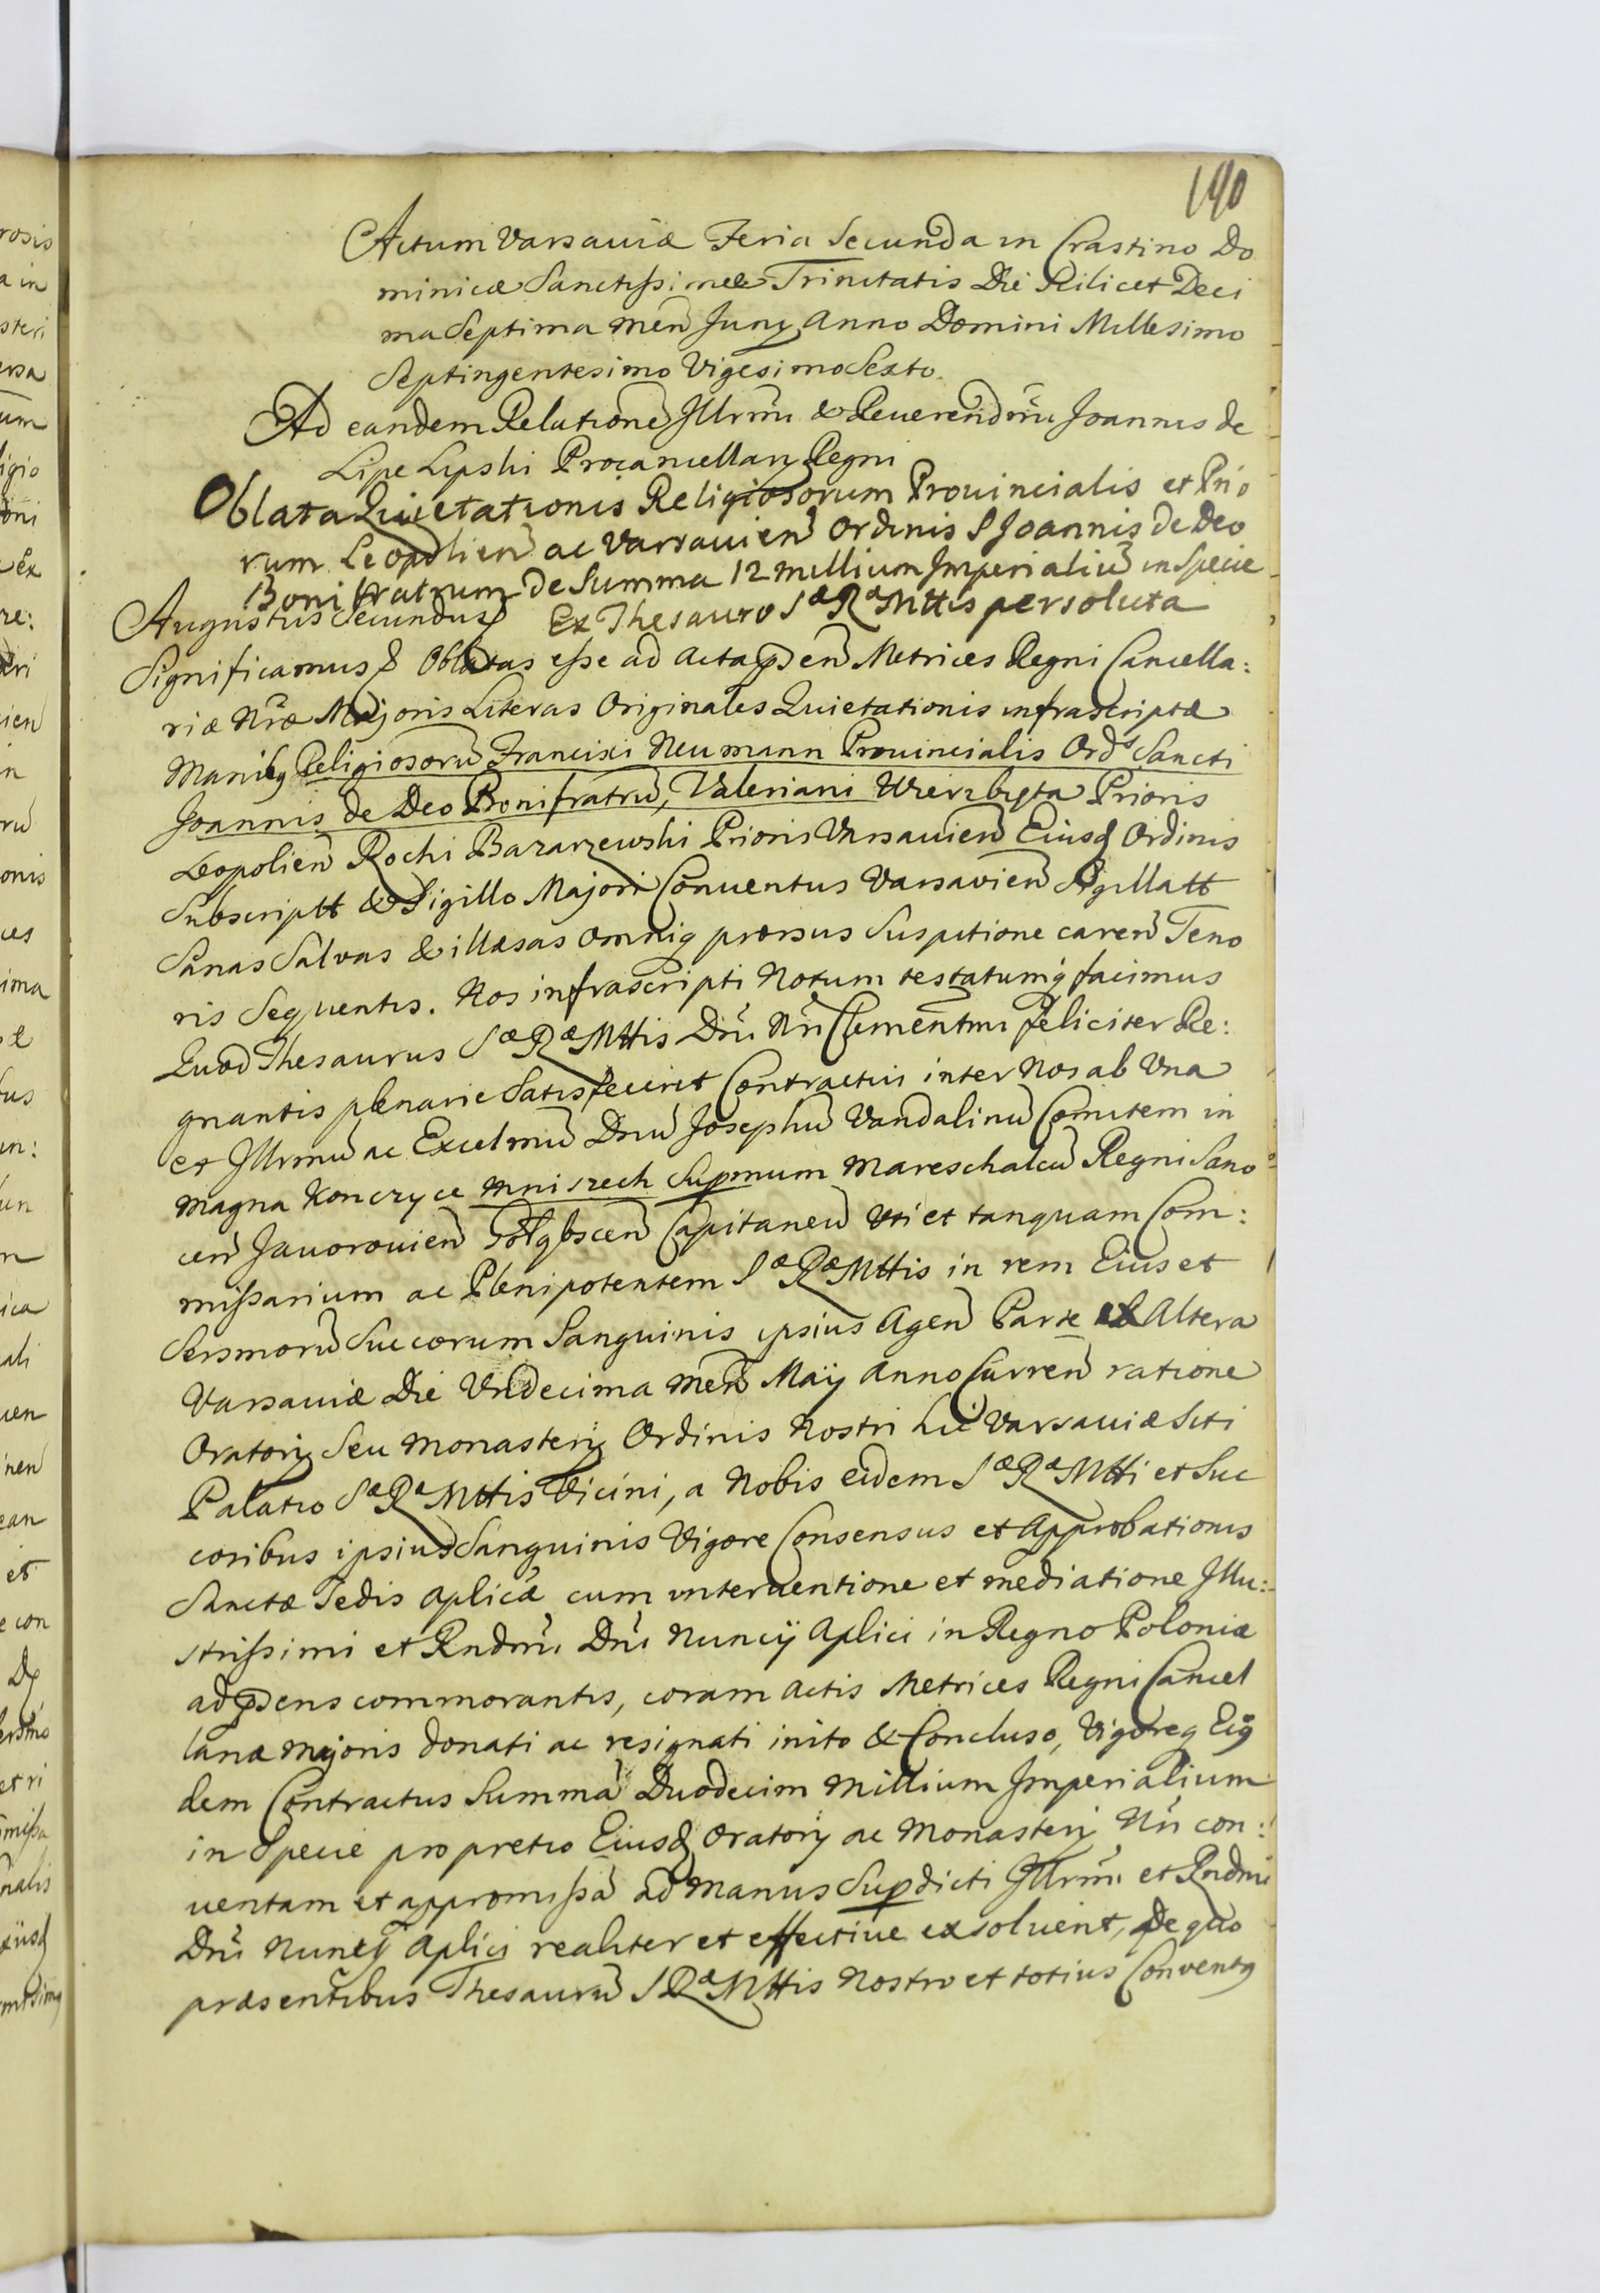 190
Actum Varsaviæ Feria Secunda in Crastino Do
minicæ Sanctissimæ Trinitatis Die Scilicet Deci
ma Septima Men Junij Anno Domini Millesimo
Septingentesimo Vigesimo Sexto.
Ad eandem Relatione Illrmi & Reverendmi Joannis de
Lipe Lipski Procancellarij Regni
Oblata Quietationis Religiosorum Provincialis et Prio
rum Leopolien ac Varsavien Ordinis S Joannis de Deo
Boni fratrum de Summa 12 millium Imperialiu in Specie
Augustus Secundus Ex Thesauro Sæ Ræ Mttis persoluta
Significamus & Oblatas esse ad Acta psen Metrices Regni Cancella:
riæ Nræ Majoris Literas Originales Quietationis infrascriptæ
Manibq Religiosoru Francisci Neumann Provincialis Ords Sancti
Joannis de Deo Bonifratru, Valeriani Wierzbięta Prioris
Leopolien Rochi Bazarzewski Prioris Varsavien Eiusd Ordinis
Subscriptt & Sigillo Majori Conventus Varsavien Sigillatt
Sanas Salvas & illæsas omniq prorsus Suspitione caren Teno
ris Sequentis. Nos infrascripti Notum testatumq facimus
Quod Thesaurus Sæ Ræ Mttis Dni Nri Clementmi feliciter Re:
gnantis plenarie Satisfecerit Contractui inter Nos ab Una
et Illrmu ac Excelmu Dnu Josephu Vandalinu Comitem in
Magna Konczyce Mniszech Supmum Mareschalcu Regni Sano
cen Javorovien Capitaneu Uti et tanquam Com:
missarium ac Plenipotentem Sæ Ræ Mttis in rem Eius et
Sersmoru Succorum Sanguinis ipsius Agen Parte ab Altera
Varsaviæ Die Undecima Men Maij Anno Curren ratione
Oratorij Seu Monasterij Ordinis Nostri hic Varsaviæ Siti
Palatio Sæ Ræ Mttis Vicini, a Nobis eidem Sæ Ræ Mtti et Suc
coribus ipsius Sanguinis Vigore Consensus et Approbationis
Sanctæ Sedis Aplicæ cum interventione et mediatione Illu:
strissimi et Rndmi Dni Nuncij Aplici in Regno Poloniæ
ad psens commorantis, coram Actis Metrices Regni Cancel
lariæ Majoris donati ac resignati inito & Concluso, Vigoreq Eiq
dem Contractus Summa Duodecim Millium Imperialium
in Specie pro pretio Eiusd Oratorij ac Monasterij Nri con:
ventam et appromissa ad Manus Supdicti Illrmi et Rndmi
Dni Nuncij Aplici realiter et effective exsolverit, De quo
præsentibus Thesauru S Ræ Mttis Nostro et totius Conventq